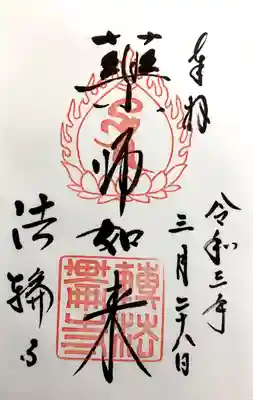 奉拝
令和三年
三月二十八日
薬師如来
法輪寺